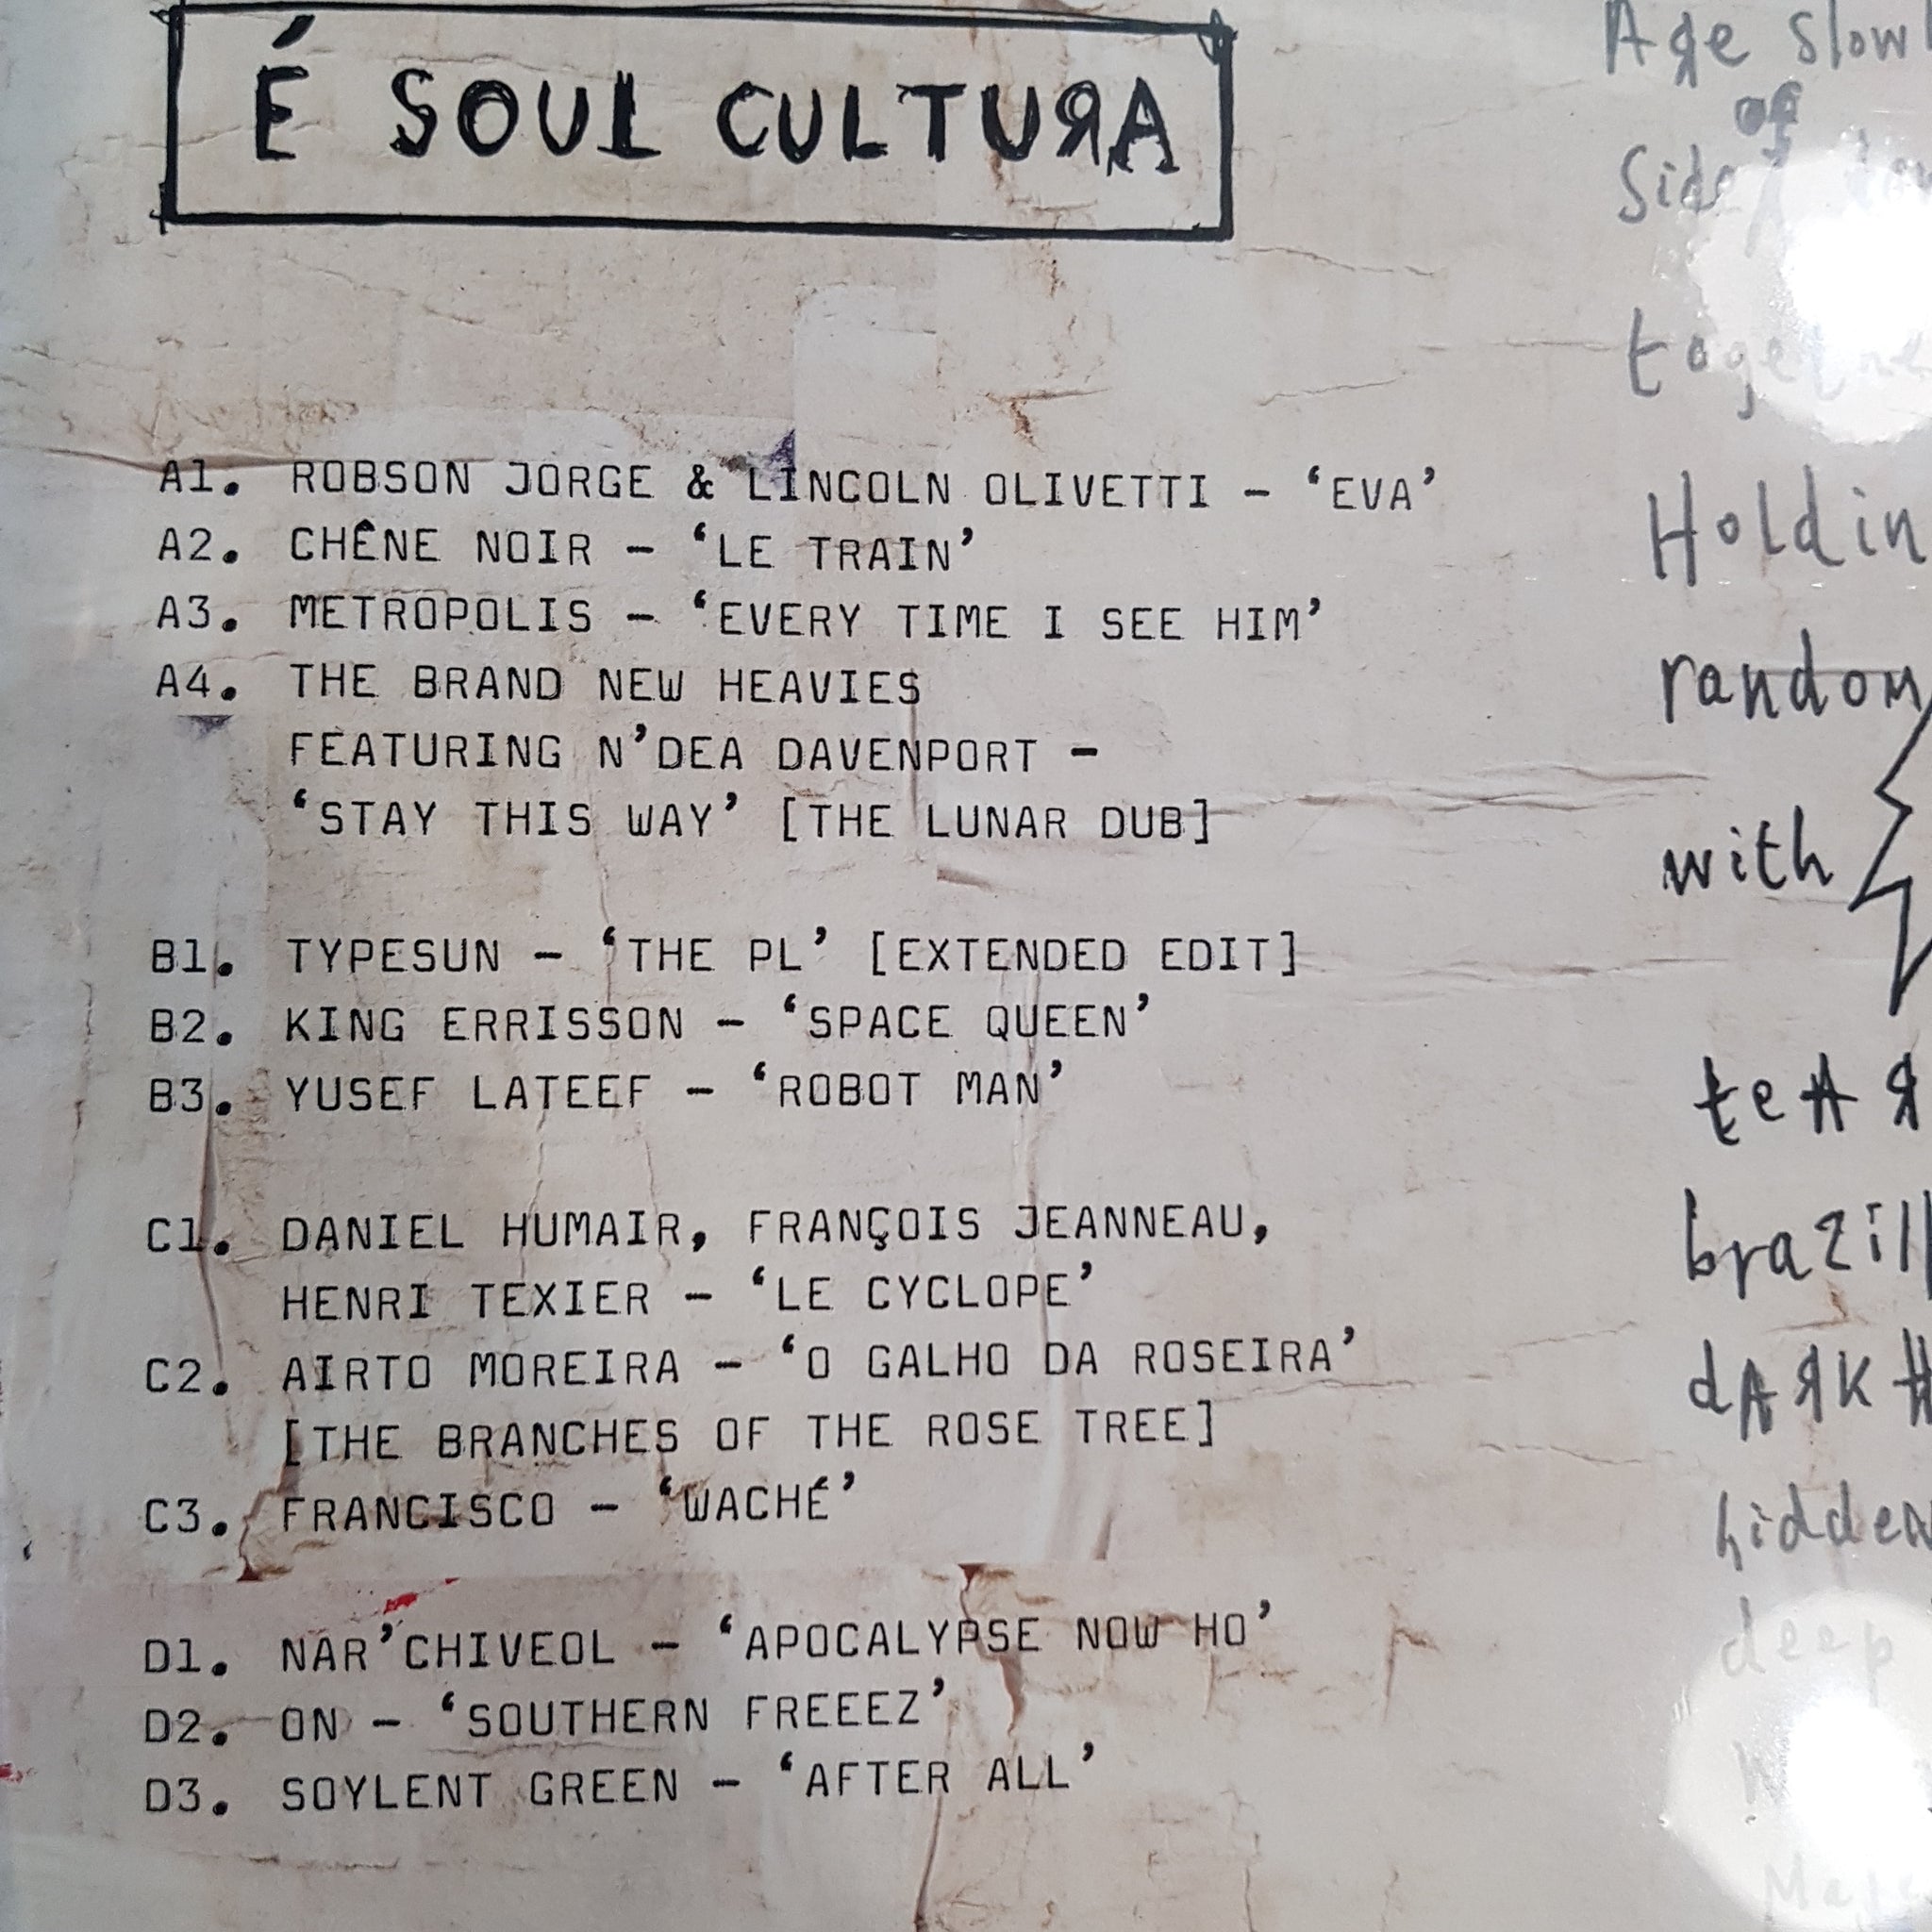 É SOUL CULTURA
A1. ROBSON JORGE & LINCOLN OLIVETTI – ‘EVA’
A2. CHÊNE NOIR – ‘LE TRAIN’
A3. METROPOLIS – ‘EVERY TIME I SEE HIM’
A4. THE BRAND NEW HEAVIES
FEATURING N’DEA DAVENPORT –
‘STAY THIS WAY’ [THE LUNAR DUB]
B1. TYPESUN – ‘THE PL’ [EXTENDED EDIT]
B2. KING ERRISSON – ‘SPACE QUEEN’
B3. YUSEF LATEEF – ‘ROBOT MAN’
C1. DANIEL HUMAIR, FRANÇOIS JEANNEAU,
HENRI TEXIER – ‘LE CYCLOPE’
C2. AIRTO MOREIRA – ‘O GALHO DA ROSEIRA’
[THE BRANCHES OF THE ROSE TREE]
C3. FRANCISCO – ‘WACHÉ’
D1. NAR’CHIVEOL – ‘APOCALYPSE NOW HO’
D2. ON – ‘SOUTHERN FREEEZ’
D3. SOYLENT GREEN – ‘AFTER ALL’
Age slow
of
Side
Holdin
random
with
teAR
brazill
dARK
hidden
deep